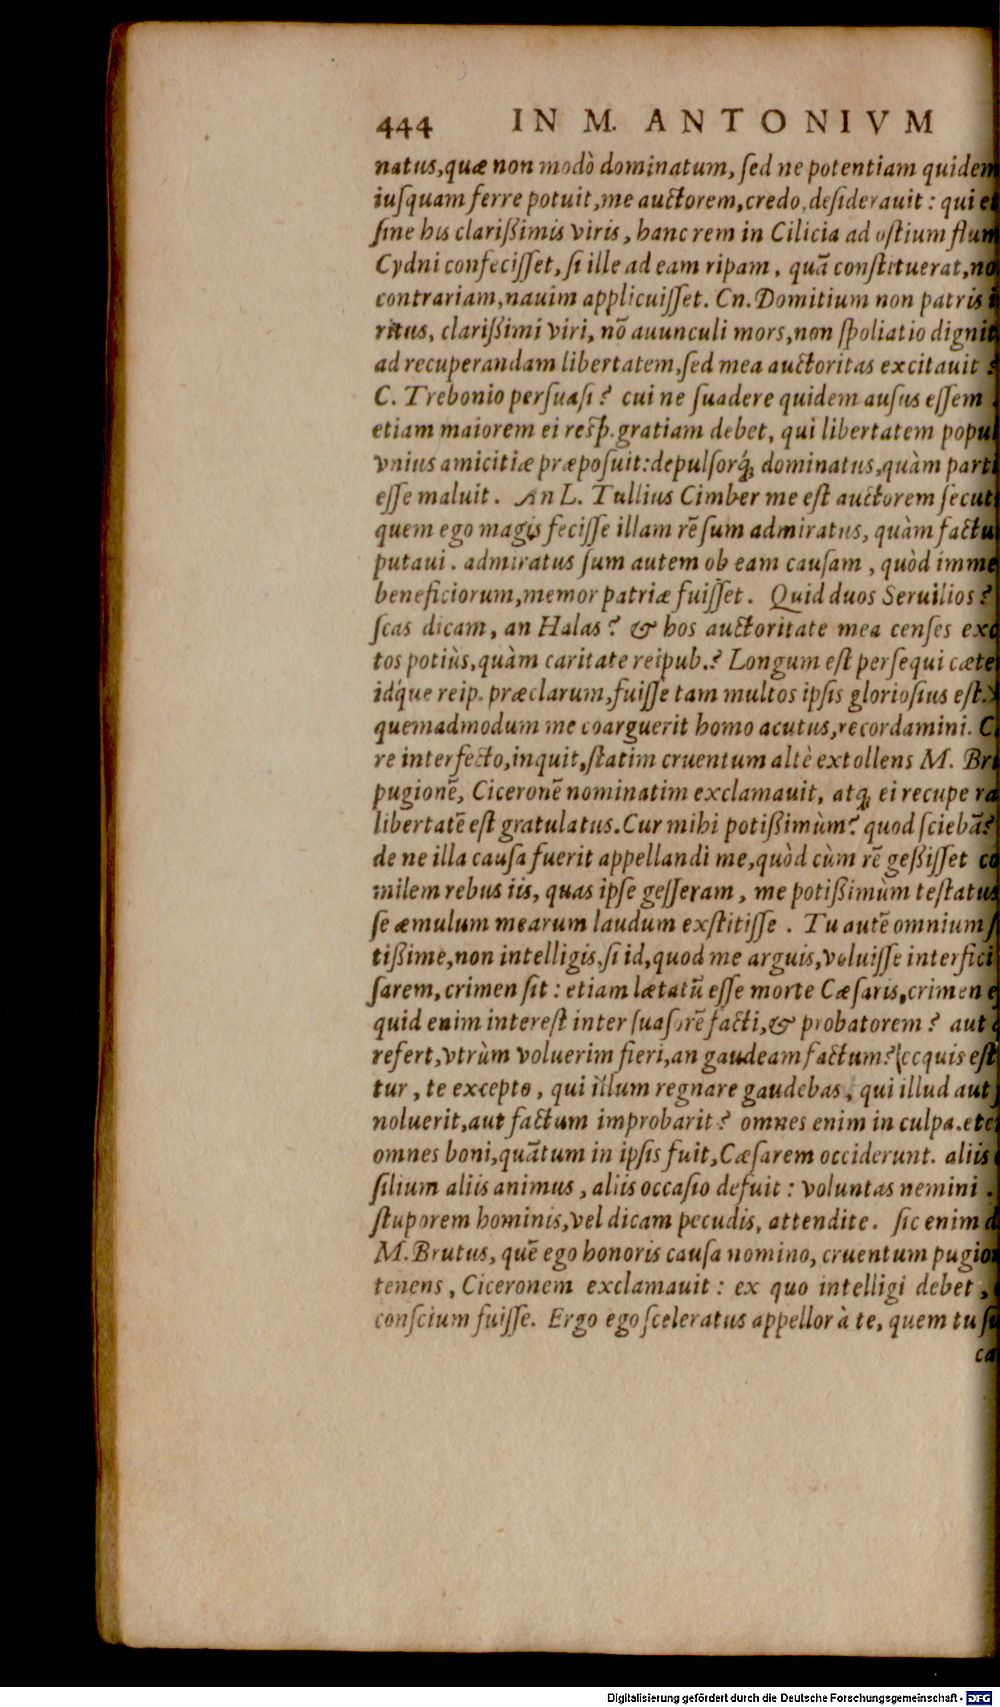 444 IN M. ANTONIVM
natus,quæ non modò dominatum, ſed ne potentiam quidem
iuſquam ferre potuit,me auctorem,credo,deſiderauit : qui et
ſine his clarißimis viris, hanc rem in Cilicia ad oſtium flum
Cydni confeciſſet, ſi ille ad eam ripam, quã conſtituerat,no
contrariam,nauim applicuiſſet. Cn. Domitium non patris i
ritus, clarißimi viri, nõ auunculi mors,non ſpoliatio dignit
ad recuperandam libertatem,ſed mea auctoritas excitauit ?
C. Trebonio perſuaſi? cui ne ſuadere quidem auſus eſſem .
etiam maiorem ei reſp. gratiam debet, qui libertatem popul
vnius amicitiæ præpoſuit:depulſorq́; dominatus,quàm parti
eſſe maluit. An L. Tullius Cimber me eſt auctorem ſecut
quem ego magis feciſſe illam rẽ ſum admiratus, quàm factu
putaui. admiratus ſum autem ob eam cauſam, quòd imme
beneficiorum,memor patriæ fuiſſet. Quid duos Seruilios?
ſcas dicam, an Halas? & hos auctoritate mea cenſes exc
tos potiùs,quàm caritate reipub.? Longum eſt perſequi cæte
idq́ue reip. præclarum,fuiſſe tam multos ipſis glorioſius eſt.
quemadmodum me coarguerit homo acutus,recordamini. C
re interfecto,inquit,ſtatim cruentum altè extollens M. Br
pugionẽ, Ciceronẽ nominatim exclamauit, atq; ei recupera
libertatẽ eſt gratulatus. Cur mihi potißimùm? quod ſciebã?
de ne illa cauſa fuerit appellandi me,quòd cùm rẽ geßiſſet co
milem rebus iis, quas ipſe geſſeram, me potißimùm teſtatus
ſe æmulum mearum laudum exſtitiſſe. Tu autẽ omnium ſ
tißime,non intelligis,ſi id,quod me arguis,voluiſſe interfici
ſarem, crimen ſit : etiam lætatũ eſſe morte Cæſaris,crimen e
quid enim intereſt inter ſuaſorẽ facti,& probatorem? aut q
refert,vtrùm voluerim fieri,an gaudeam factum? ecquis eſt
tur, te excepto, qui illum regnare gaudebas, qui illud aut
noluerit,aut factum improbarit? omnes enim in culpa.ete
omnes boni,quãtum in ipſis fuit,Cæſarem occiderunt. aliis
ſilium aliis animus, aliis occaſio defuit : voluntas nemini .
ſtuporem hominis,vel dicam pecudis, attendite. ſic enim d
M. Brutus, quẽ ego honoris cauſa nomino, cruentum pugio
tenens, Ciceronem exclamauit : ex quo intelligi debet,
conſcium fuiſſe. Ergo ego ſceleratus appellor à te, quem tu ſu
ca
Digitalisierung gefördert durch die Deutsche Forschungsgemeinschaft - DFG